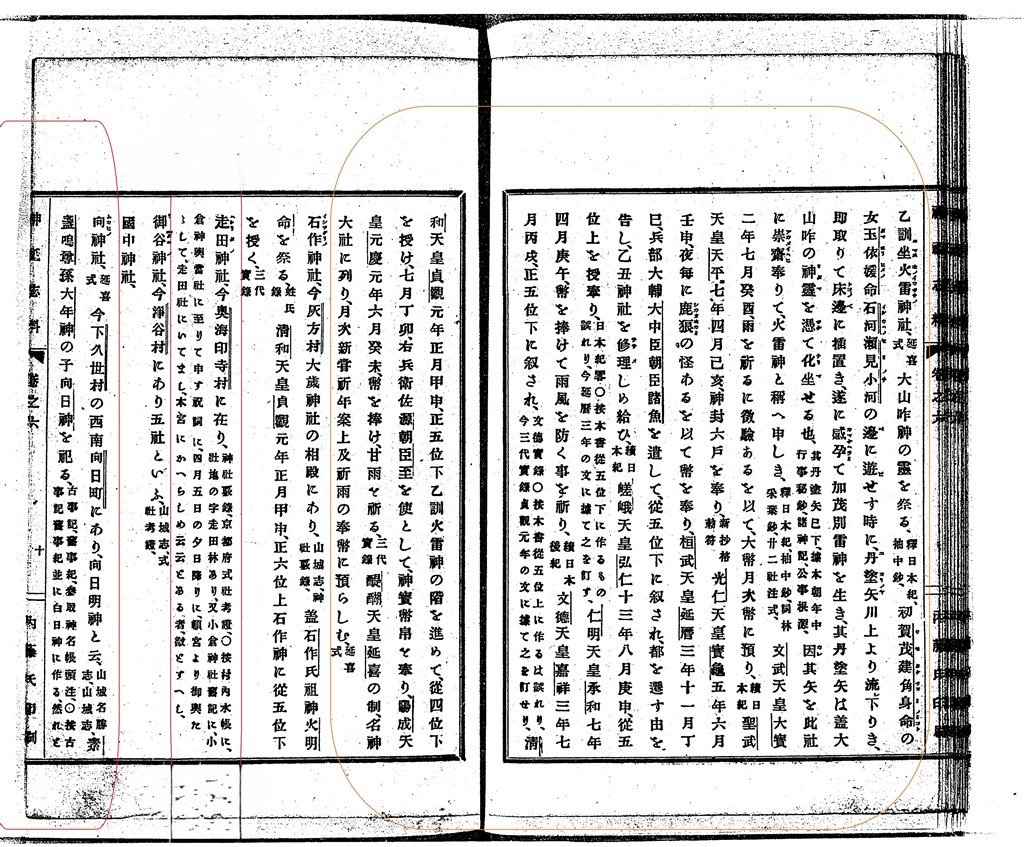 乙訓坐火雷神社、延喜式 大山咋神の靈を祭る、釋日本紀、袖中鈔、 初賀茂建角身命の
女玉依媛命石河瀨見小河の邊に遊せす時に、丹塗矢川上より流下りき、
即取りて床邊に插置き、遂に感孕て加茂別雷神を生き、其丹塗矢は蓋大
山咋の神靈を憑て化坐せる也、其丹塗矢已下、據本朝年中行事秘鈔、諸神記、公事根源、 因其矢を此社
に崇齋奉りて、火雷神と稱へ申しき、釋日本紀袖中鈔、詞林采葉鈔廿二社注式、 文武天皇大寶
二年七月癸酉、雨を祈るに徴驗あるを以て、大幣月次幣に預り、續日本紀 聖武
天皇天平七年四月己亥、神封六戸を奉り、新抄格勅符 光仁天皇寶龜五年六月
壬申、夜每に鹿狼の怪あるを以て幣を奉り、桓武天皇延曆三年十一月丁
巳、兵部大輔大中臣朝臣諸魚を遣して、從五位下に叙され、都を遷す由を
告し、乙丑神社を修理しめ給ひ、續日本紀 嵯峨天皇弘仁十三年八月庚申、從五
位上を授奉り、日本紀畧〇按本書從五位下に作るもの誤れり、今延曆三年の文に據て之を訂す、 仁明天皇承和七年
四月庚午、幣を捧けて雨風を防く事を祈り、續日本後紀 文德天皇嘉祥三年七
月丙戌、正五位下に叙され、文德實錄〇按本書從五位上に作るは誤れり、今三代實錄貞觀元年の文に據て之を訂せり、 清
和天皇貞觀元年正月甲申、正五位下乙訓火雷神の階を進めて、從四位下
を授け、七月丁卯右兵衛佐源朝臣至を使として、神寶幣帛を奉り、陽成天
皇元慶元年六月癸未幣を捧け、甘雨を祈る、三代實錄 醍醐天皇延喜の制、名神
大社に列り、月次新嘗祈年案上及祈雨の奉幣に預らしむ、延喜式
石作神社、今灰方村大歲神社の相殿にあり、山城志、神社覈錄、 蓋石作氏祖神火明
命を祭る、姓氏錄 清和天皇貞觀元年正月甲申、正六位上石作神に從五位下
を授く、三代實錄
走田神社、今奥海印寺村に在り、神社覈錄、京都府式社考證〇按村內水帳に、社地の字走田林あり、又小倉神社舊記に、小
倉神輿當社に至りて申す祝詞に、四月五日の夕日降りに頓宮より御輿た
〻して、走田社にいてまし、本宮にかへらしめ云云とある者、徵とすへし、
御谷神社、今淨谷村にあり五社といふ、山城志、式社考證、
國中神社、
向神社、延喜式 今下久世村の西南向日町にあり、向日明神と云、山城名勝志、山城志、 素
盞嗚尊孫大年神の子向日神を祀る、古事記、舊事紀、參取神名帳頭注、〇按古事記舊事紀並に白日神に作る、然れと